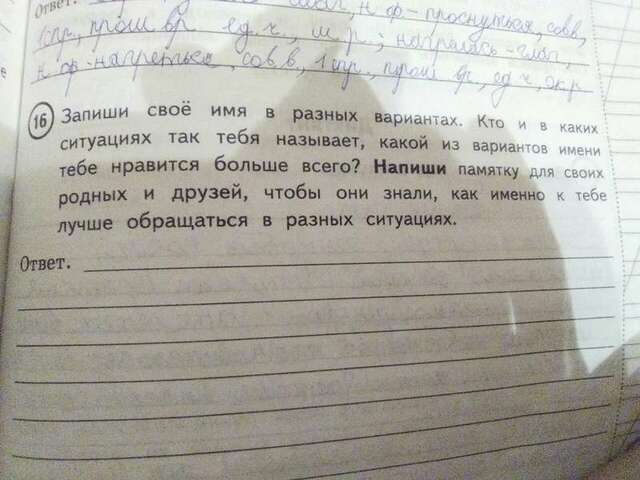 Ответ.
н.ф.-проснуться, сов.в,
1 спр., прош вр ед.ч., м.р.; нагрелась-глаг,
н.ф-нагреться, сов.в, 1 спр., прош вр, ед.ч, ж.р
16 Запиши своё имя в разных вариантах. Кто и в каких
ситуациях так тебя называет, какой из вариантов имени
тебе нравится больше всего? Напиши памятку для своих
родных и друзей, чтобы они знали, как именно к тебе
лучше обращаться в разных ситуациях.
Ответ.